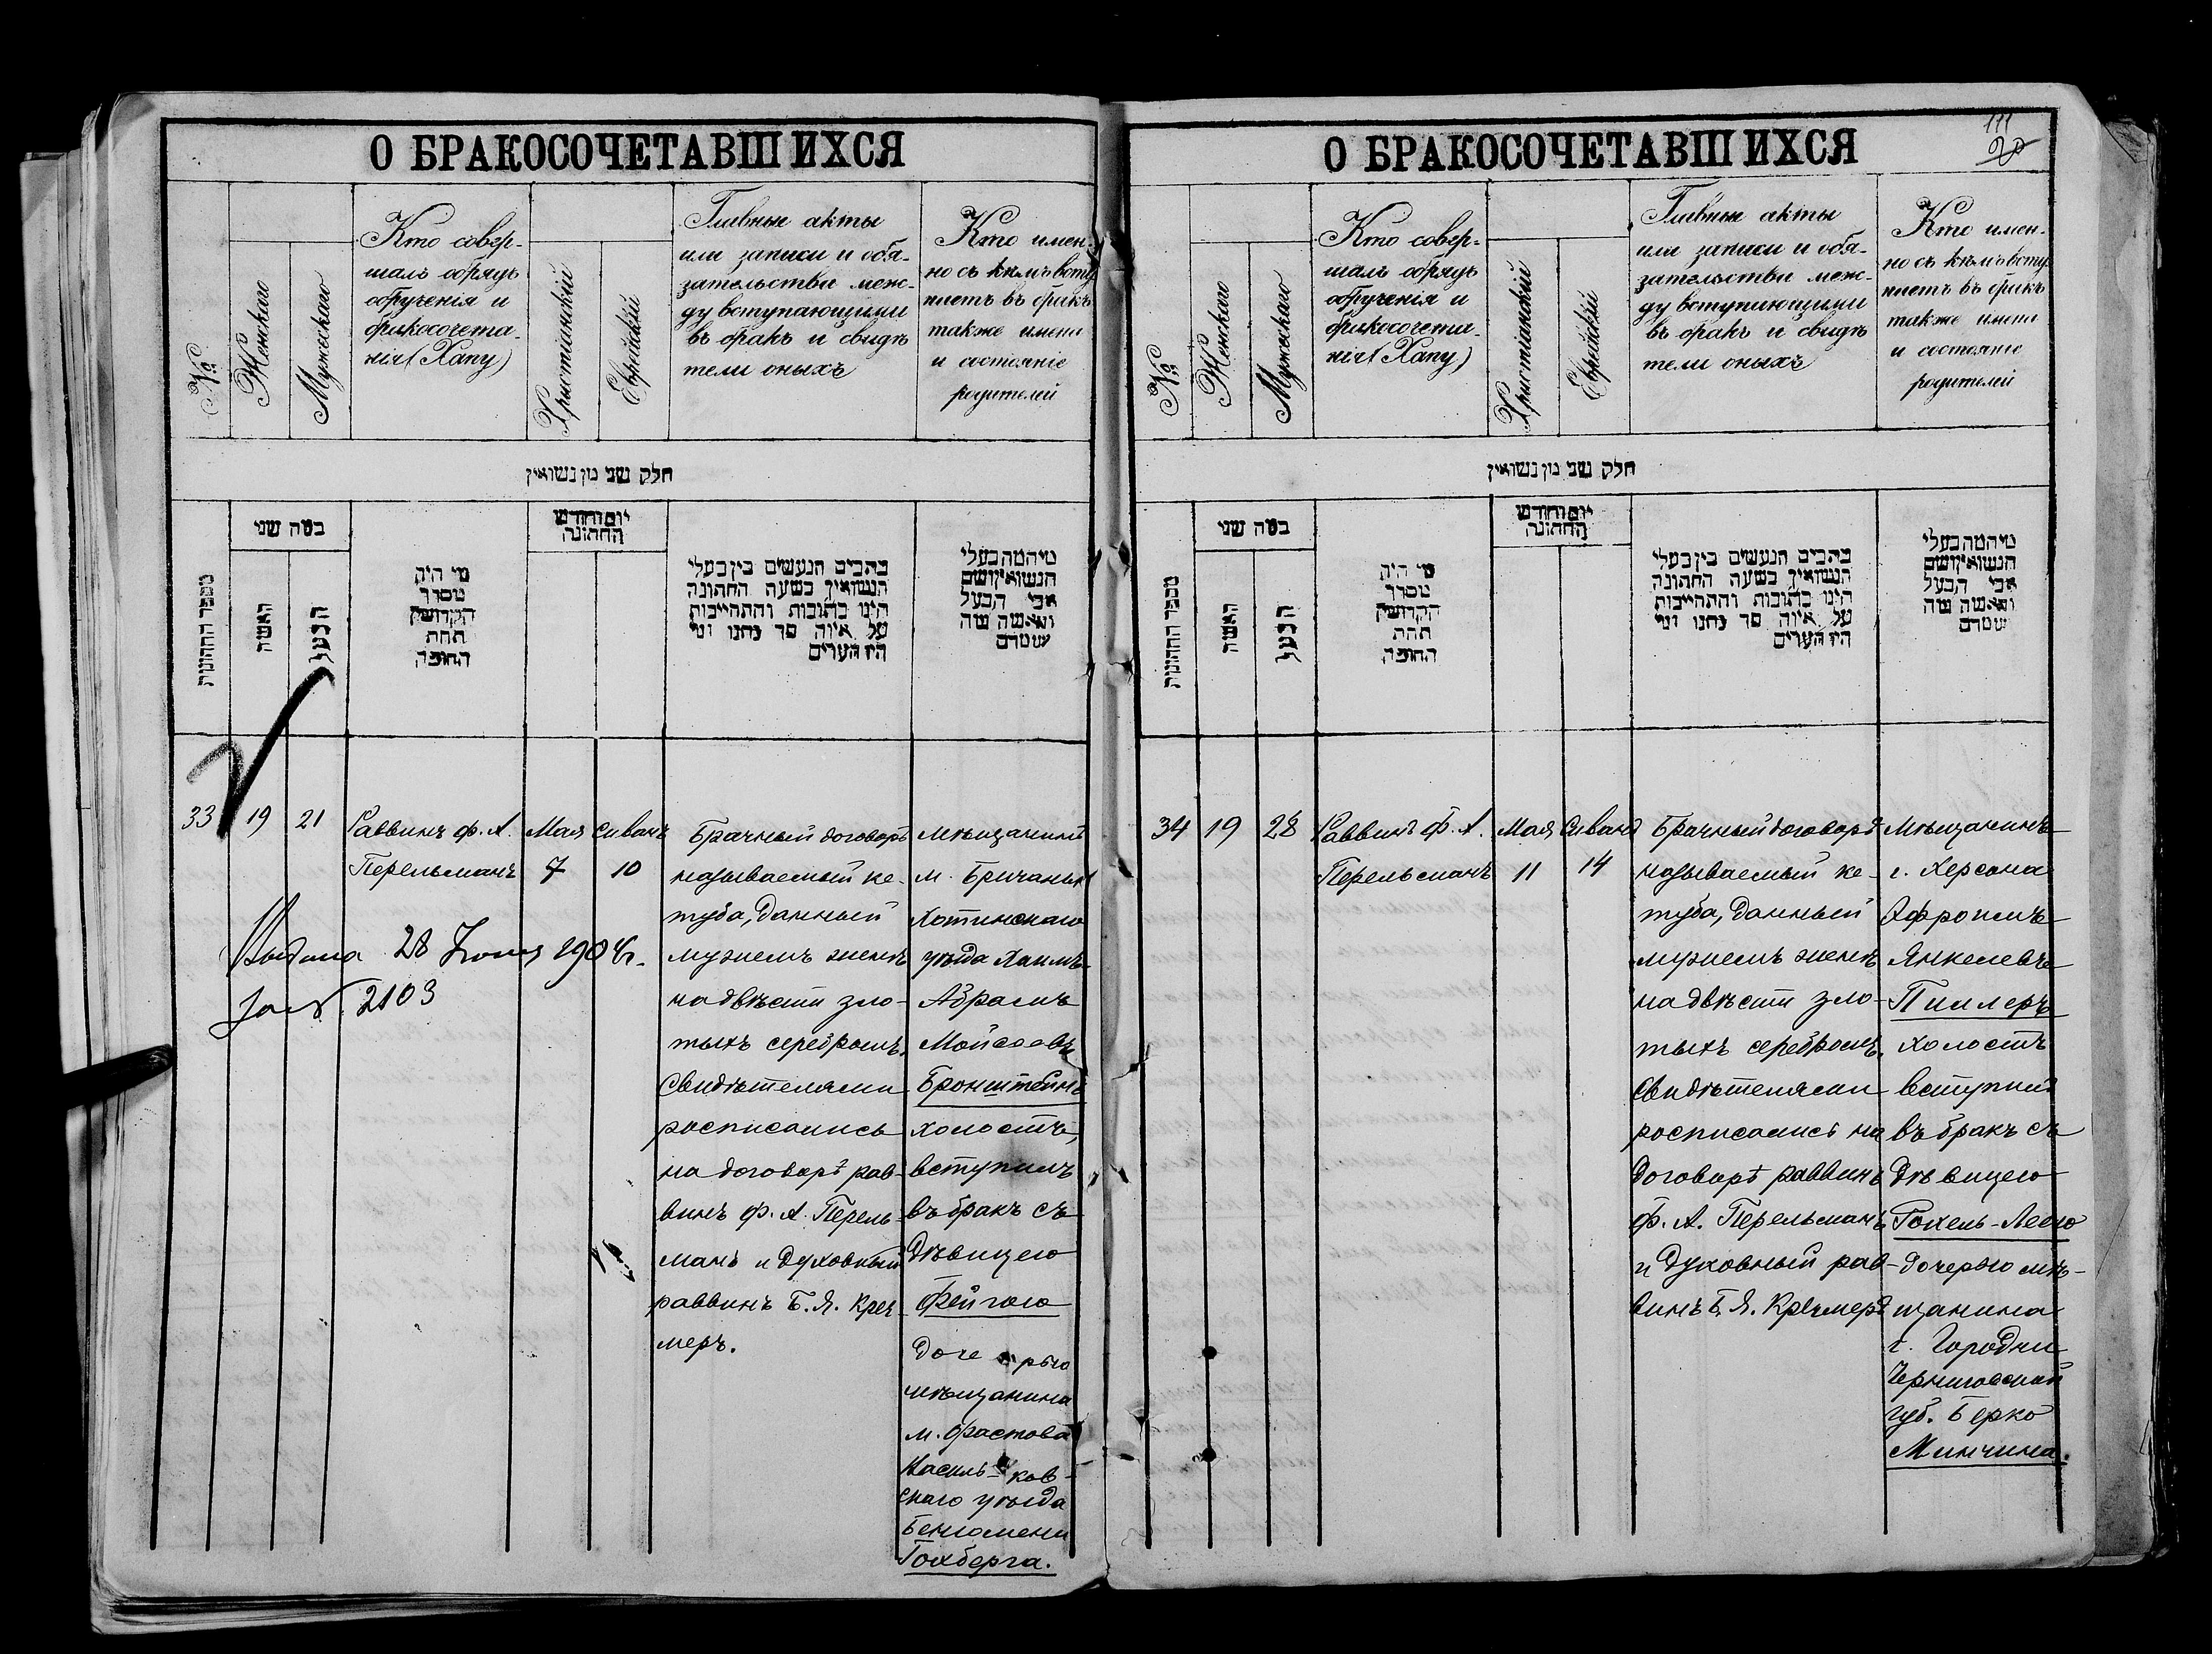 О БРАКОСОЧЕТАВШИХСЯ
№
Женскаго
Мужескаго
Кто совер-
шалъ обрядъ
обрученія и
бракосочета-
нія (Хапу)
Христіанскій
Еврейскій
Главные акты
или записи и обя-
зательства меж-
ду вступающими
въ бракъ и свидѣ
тели оныхъ
Кто имен-
но съ кѣмъ всту
паетъ въ бракъ
также имена
и состояніе
родителей
חלק שני מן נשואין
מספר החתונות
כמה שני
האשה
הבעל
מי היה
מסדר
הקדושין
תחת
החופה
יום וחודש
החתונה
כתבים הנעשים בין בעלי
הנשואין בשעה החתונה
היינו כתובות והתחייבות
על איזה סך נתנו ומי
היו העדים
הנשואין ושם
אבי הבעל
33
19
21
Раввинъ Ф. А.
Перельманъ
Мая
7
Сиванъ
10
Брачный договоръ
называемый ке-
туба, данный
мужемъ женѣ
на двѣсти зло-
тыхъ серебромъ.
Свидѣтелями
росписались
на договорѣ рав-
винъ Ф. А. Перель-
манъ и духовный
раввинъ Б. Я. Креч
меръ.
мѣщанинъ
м. Бричаны
Хотинскаго
уѣзда Хаимъ-
Абрамъ
Мойсеевъ
Бронштейнъ
холостъ,
вступилъ
въ бракъ съ
дѣвицею
Фейгою
дочерью
мѣщанина
м. Фастова
Василь-ков-
скаго уѣзда
Беніомена
Гохберга.
Выдана 28 Іюня 1904 г.
за № 2103
О БРАКОСОЧЕТАВШИХСЯ
111
20
№
Женскаго
Мужескаго
Кто совер-
шалъ обрядъ
обрученія и
бракосочета-
нія (Хапу)
Христіанскій
Еврейскій
Главные акты
или записи и обя-
зательства меж-
ду вступающими
въ бракъ и свидѣ
тели оныхъ
Кто имен-
но съ кѣмъ всту
паетъ въ бракъ
также имена
и состояніе
родителей
חלק שני מן נשואין
מספר החתונות
כמה שני
האשה
הבעל
מי היה
מסדר
הקדושין
תחת
החופה
יום וחודש
החתונה
כתבים הנעשים בין בעלי
הנשואין בשעה החתונה
היינו כתובות והתחייבות
על איזה סך נתנו ומי
היו העדים
הנשואין ושם
אבי הבעל
34
19
28
Раввинъ Ф. А.
Перельманъ
Мая
11
Сиванъ
14
Брачный договоръ
называемый ке-
туба, данный
мужемъ женѣ
на двѣсти зло-
тыхъ серебромъ.
Свидѣтелями
росписались на
договорѣ раввинъ
Ф. А. Перельманъ
и духовный рав-
винъ Б. Я. Кречмеръ
Мѣщанинъ
г. Херсона
Эфроимъ
Янкелевъ
Пиллеръ
холостъ
вступилъ
въ бракъ съ
дѣвицею
Рохель-Леею
дочерью мѣ-
щанина
г. Городни
Черниговской
губ. Берко
Минчина.